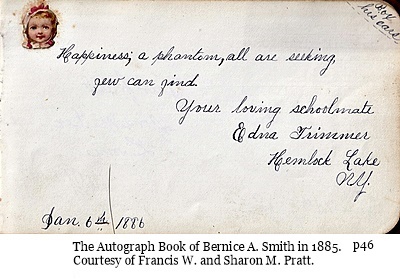 Happiness; a phantom, all are seeking,
few can find.
Your loving schoolmate
Edna Trimmer
Hemlock Lake
N.Y.
Jan. 6th / 1886
The Autograph Book of Bernice A. Smith in 1885. p46
Courtesy of Francis W. and Sharon M. Pratt.